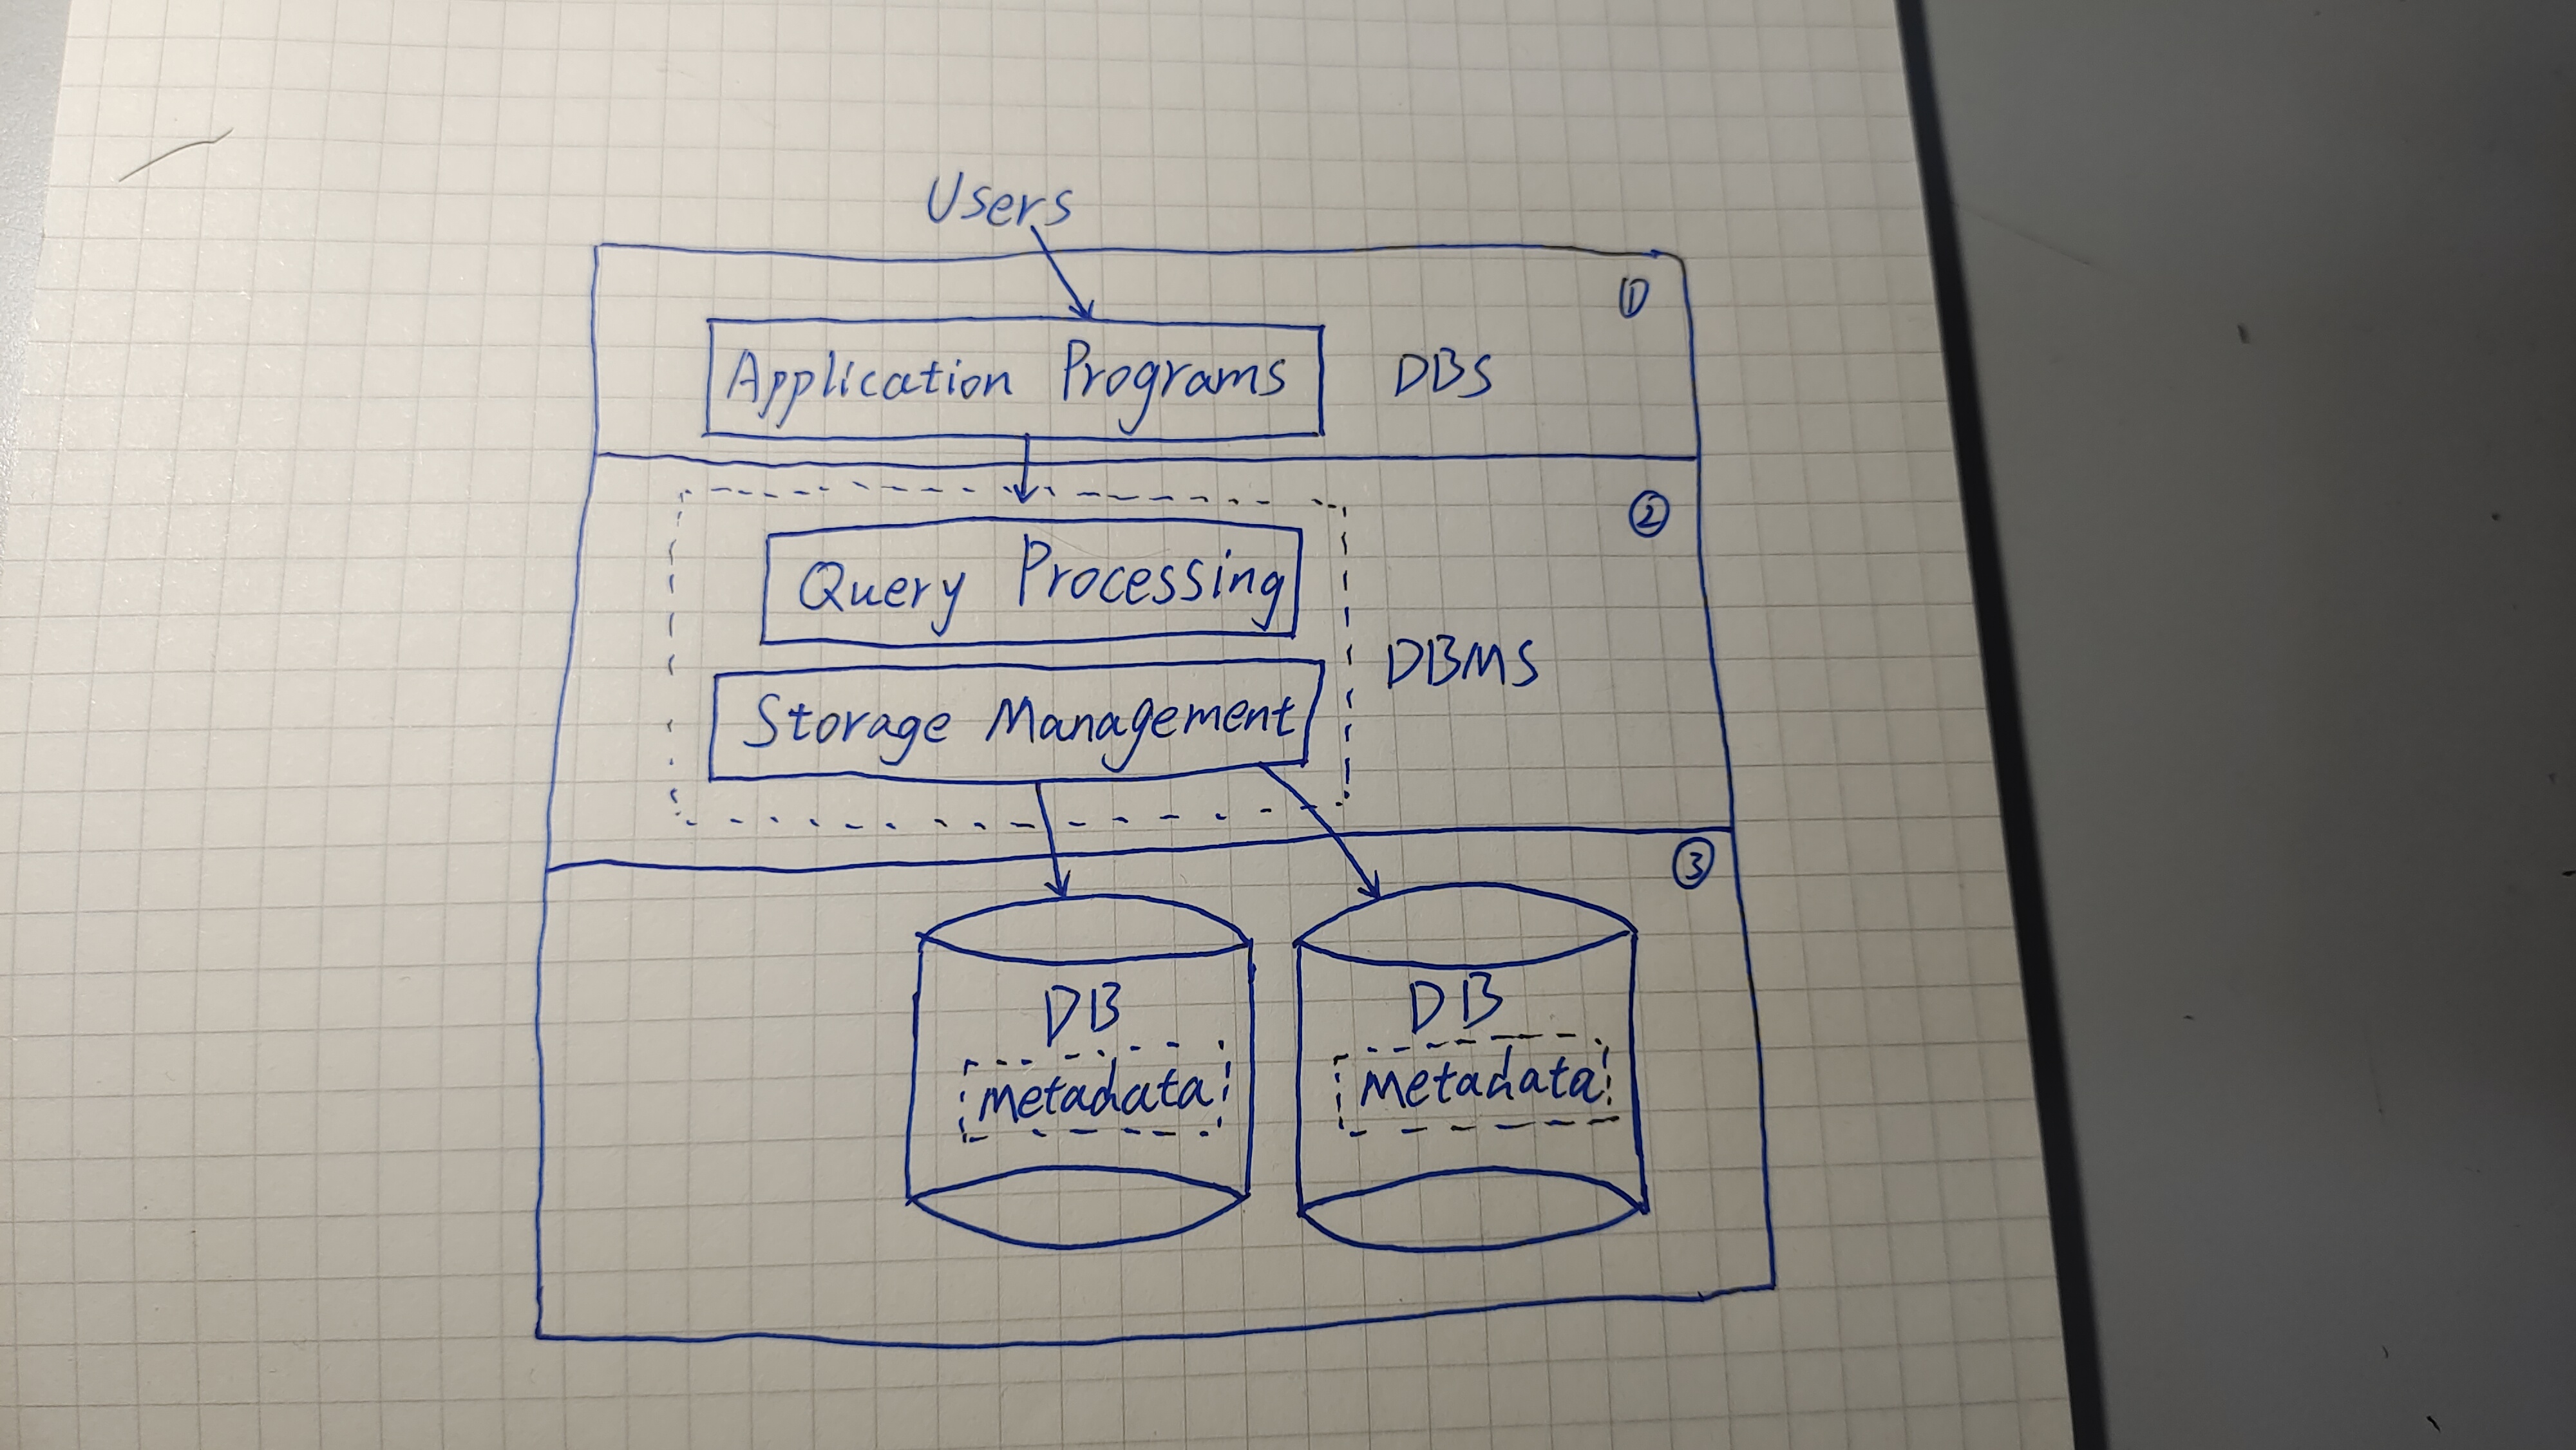 Users
①
Application Programs DBS
②
Query Processing
DBMS
Storage Management
③
DB DB
metadata metadata